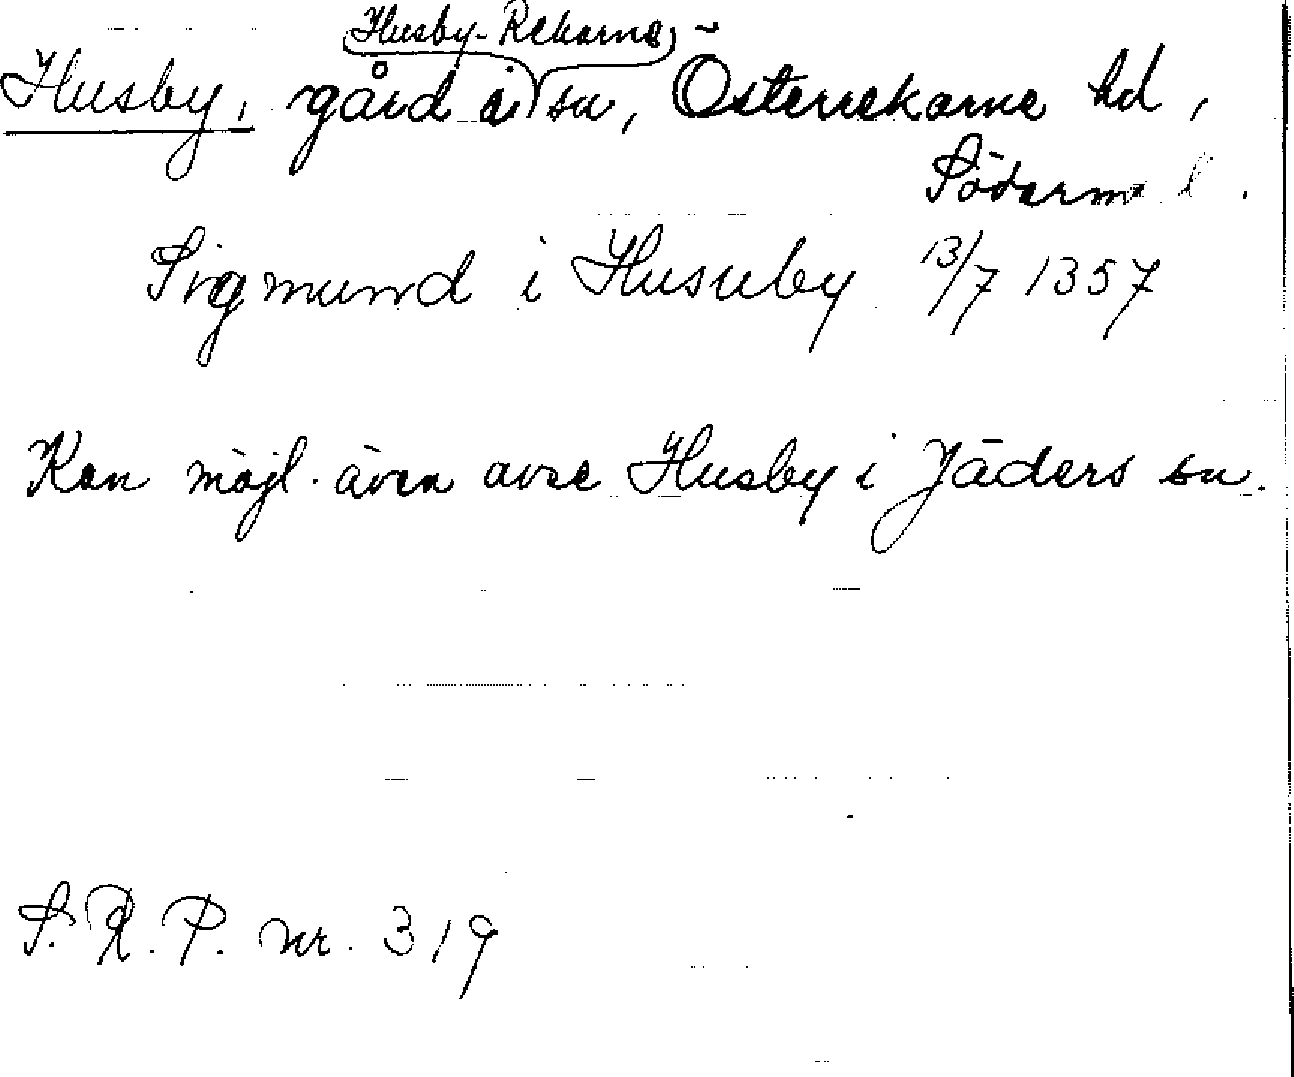 Husby, gård i Husby-Rekarne sn, Österrekarne hd,
Söderm. l.
Sigmund i Husuby 13/7 1357
Kan möjl. även avse Husby i Jäders sn.
S. R. P. nr. 319